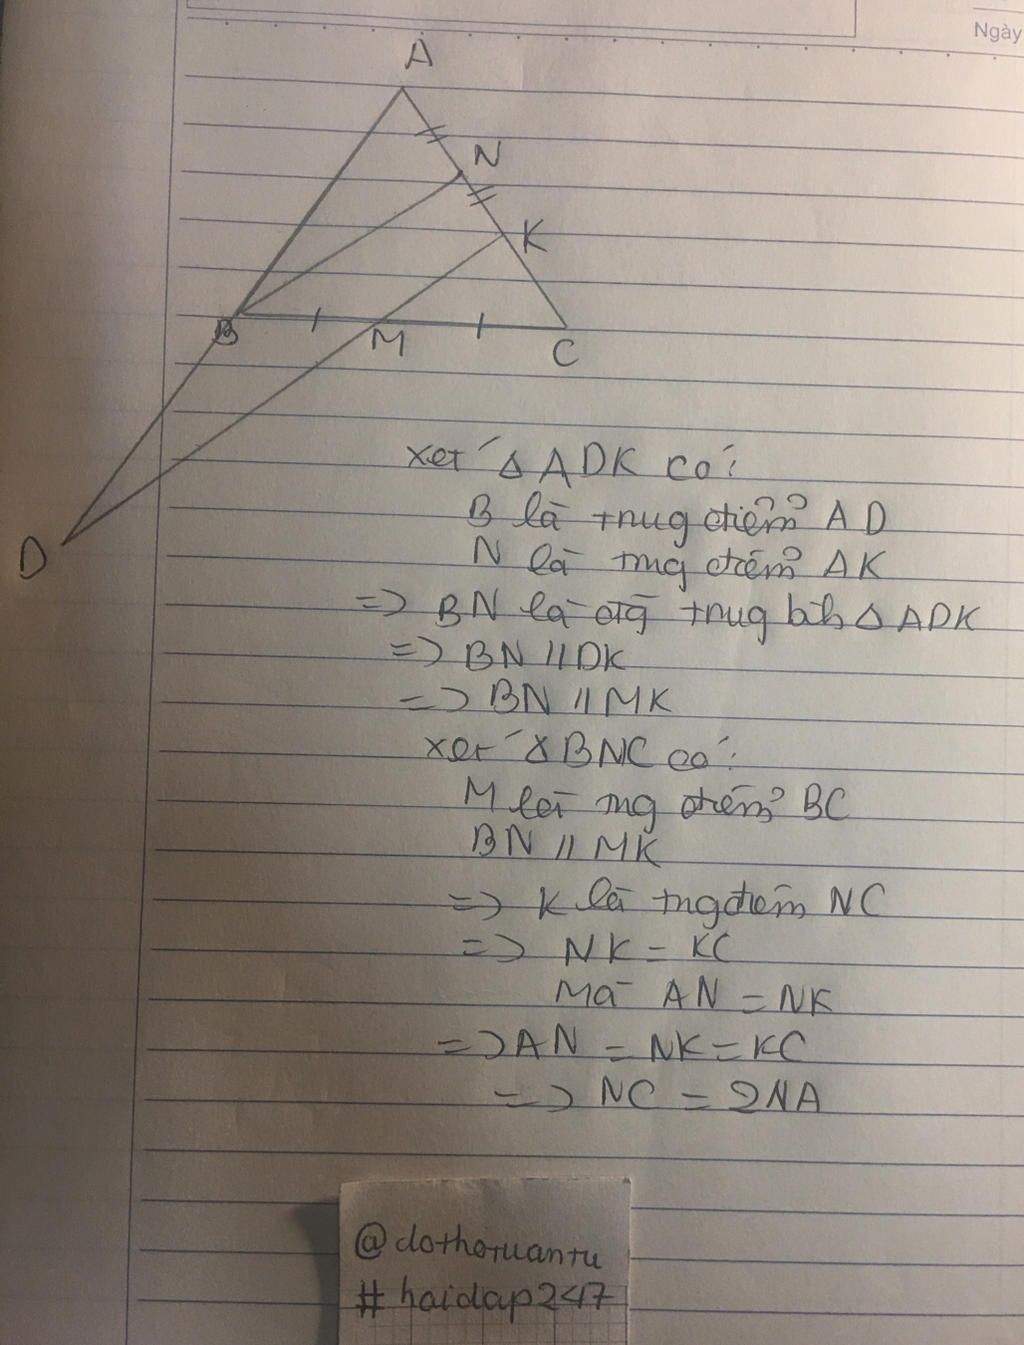 Ngày
A
N
K
B
M
C
D
xét Δ ADK có:
B là trung điểm AD
N là trung điểm AK
=> BN là đtg trung bình Δ ADK
=> BN // DK
=> BN // MK
xét Δ BNC có:
M là trung điểm BC
BN // MK
=> K là trung điểm NC
=> NK = KC
Mà AN = NK
=> AN = NK = KC
=> NC = 2NA
@dothotuantu
#hoidap247